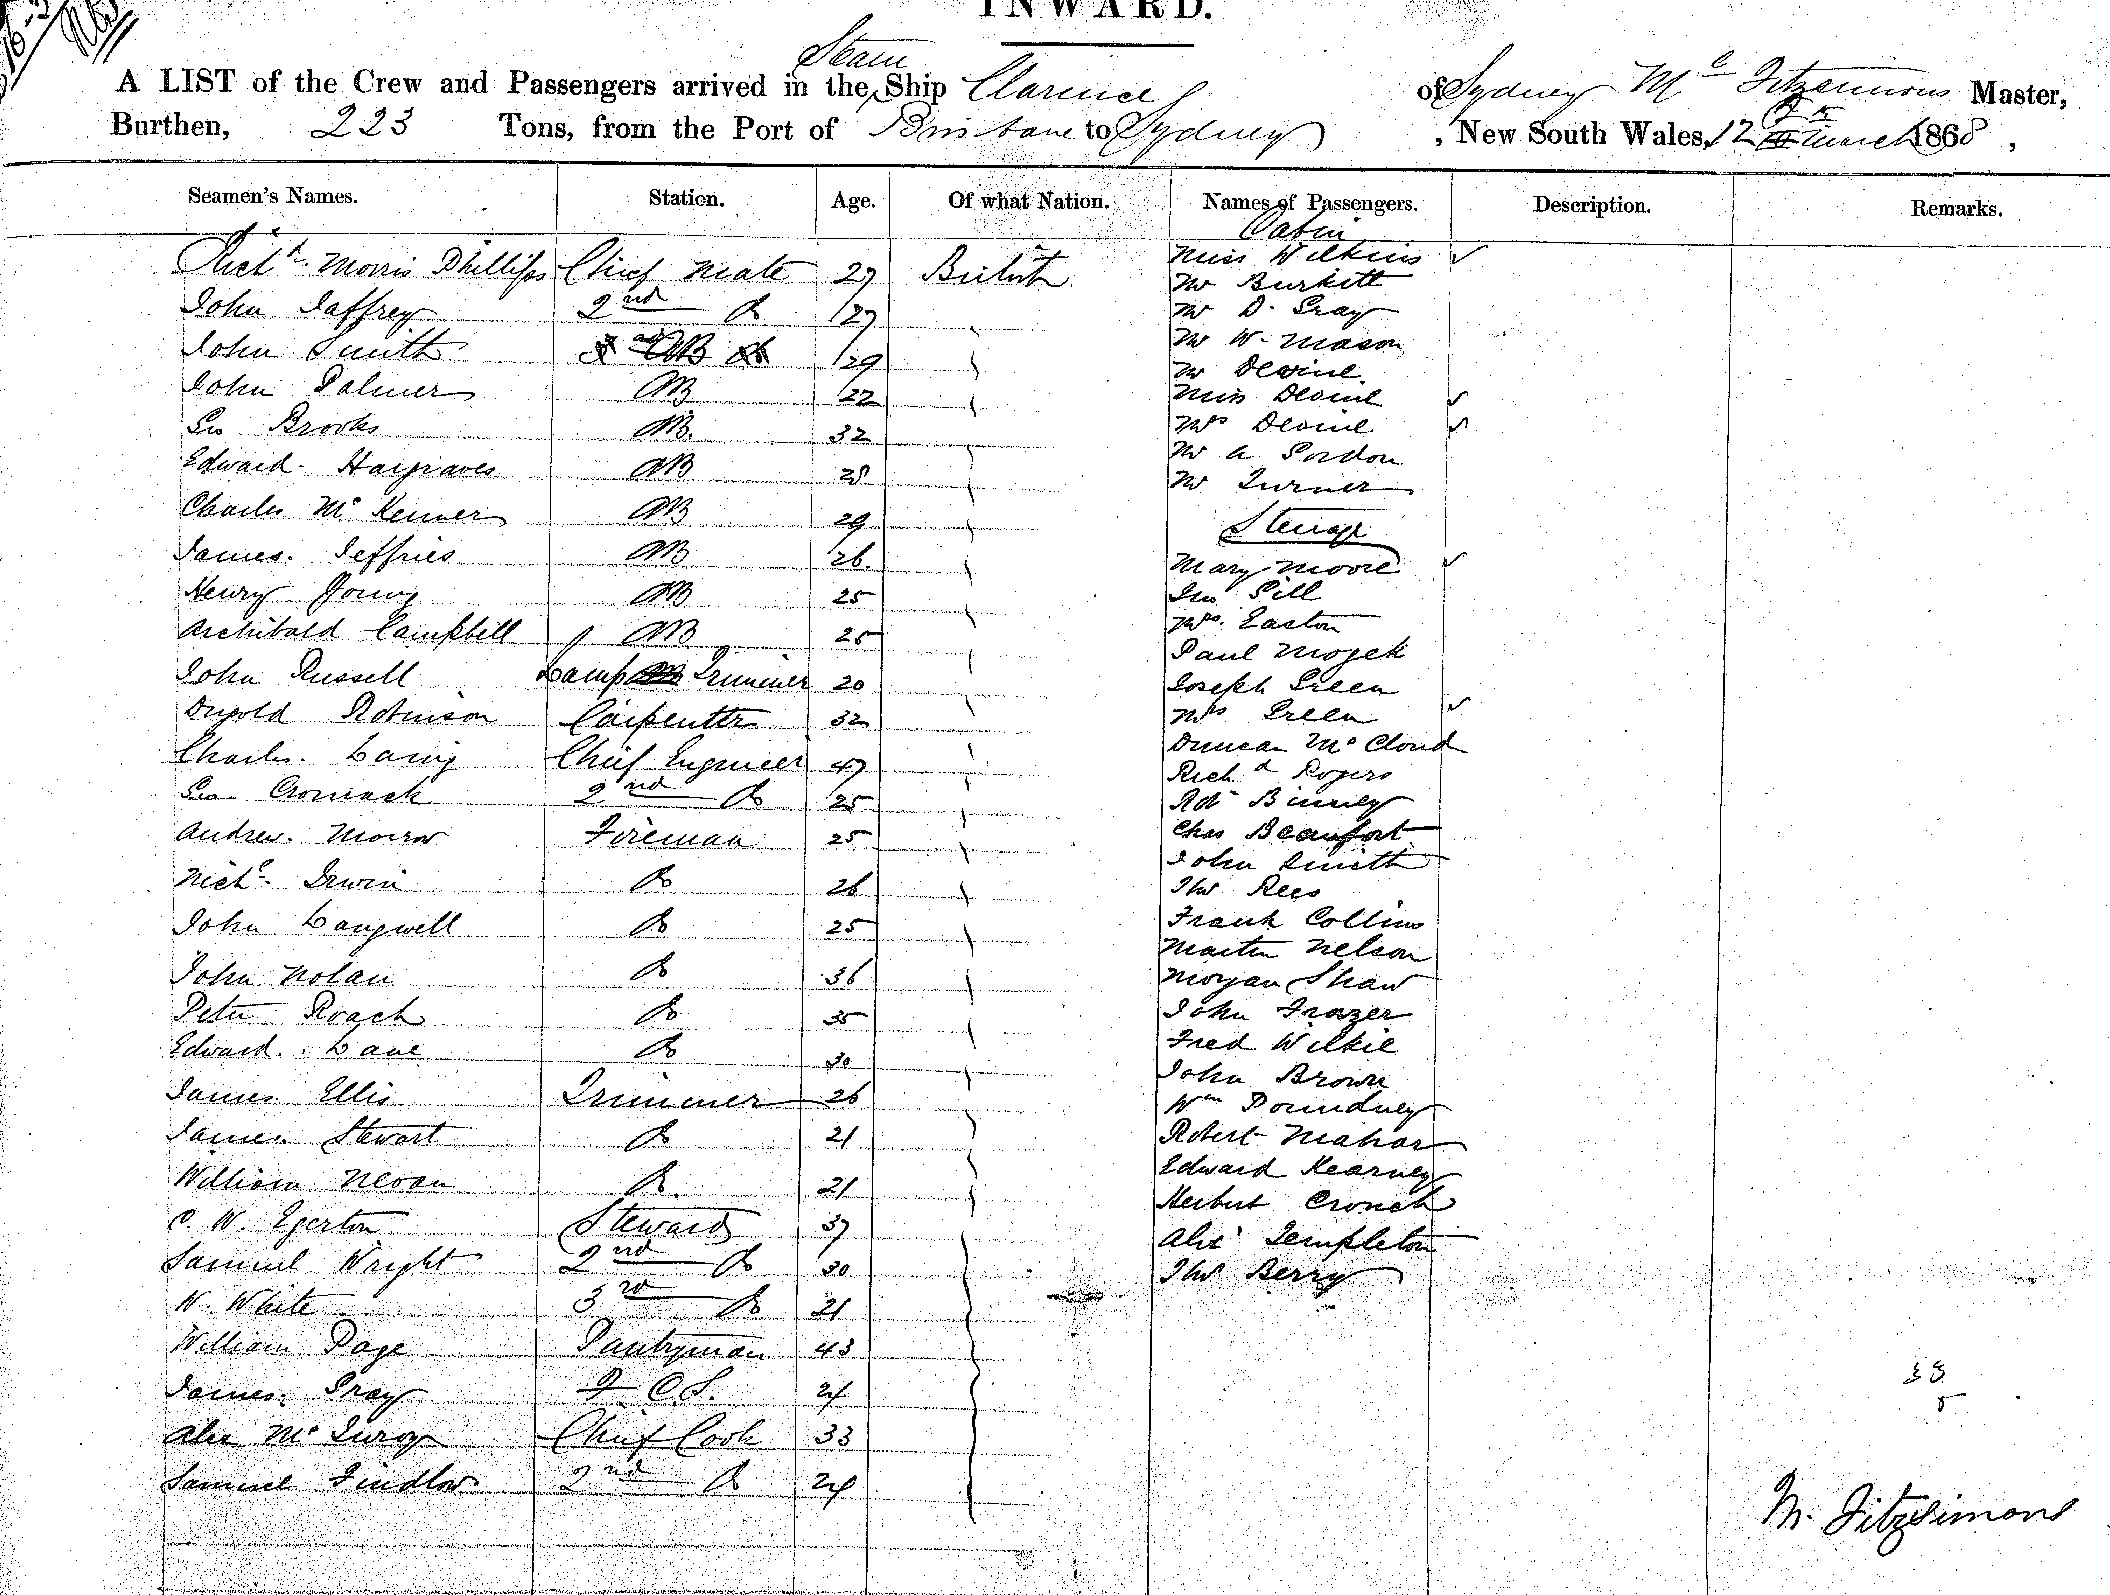 INWARD.
A LIST of the Crew and Passengers arrived in the Steam Ship Clarence of Sydney Mc Fitzsimons Master,
Burthen, 223 Tons, from the Port of Brisbane to Sydney , New South Wales, 12 March 1868 ,
Seamen's Names. Station. Age. Of what Nation. Names of Passengers. Description. Remarks.
Richd Morris Phillips Chief Mate 27 British
John Jaffrey 2nd Do 27
John Smith AB 29
John Palmer AB 22
Geo Brooks AB 32
Edward Hargraves AB 28
Charles Mc Kenner AB 29
James Jeffries AB 26
Henry Young AB 25
Archibald Campbell AB 25
John Russell Lamp Trimmer 20
Robinson Carpenter 32
Charles Laing Chief Engineer 47
Geo Cromack 2nd Do 25
Andrew Morrow Fireman 25
Michl Irwin Do 26
John Langwell Do 25
John Nolan Do 36
Peter Roach Do 35
Edward Lane Do 30
James Ellis Trimmer 26
James Stewart Do 21
William Nevan Do 21
C. W. Egerton Steward 37
Samuel Wright 2nd Do 30
W. White 3rd Do 21
William Page Pantryman 43
James Gray F C S. 24
Alex Mc Chief Cook 33
Samuel Findlow 2nd Do 24
Cabin
Miss Wilkins
Mr Burkitt
Mr D. Gray
Mr W. Mason
Mr Devine
Miss Devine
Mrs Devine
Mr A Gordon
Mr Turner
Steerage
Mary Moore
Jno Gill
Mrs. Easton
Paul Mozek
Joseph Green
Mrs Green
Duncan Mc Cloud
Richd Rogers
Robt Binney
Chas Beaufort
John Smith
Thos Rees
Frank Collins
Martin Nelson
Morgan Shaw
John Frazer
Fred Wilkie
John Brown
Wm Poundney
Robert Mahar
Edward Kearney
Herbert Crouch
Alex Templeton
Thos Berry
33
5
M. Fitzsimons